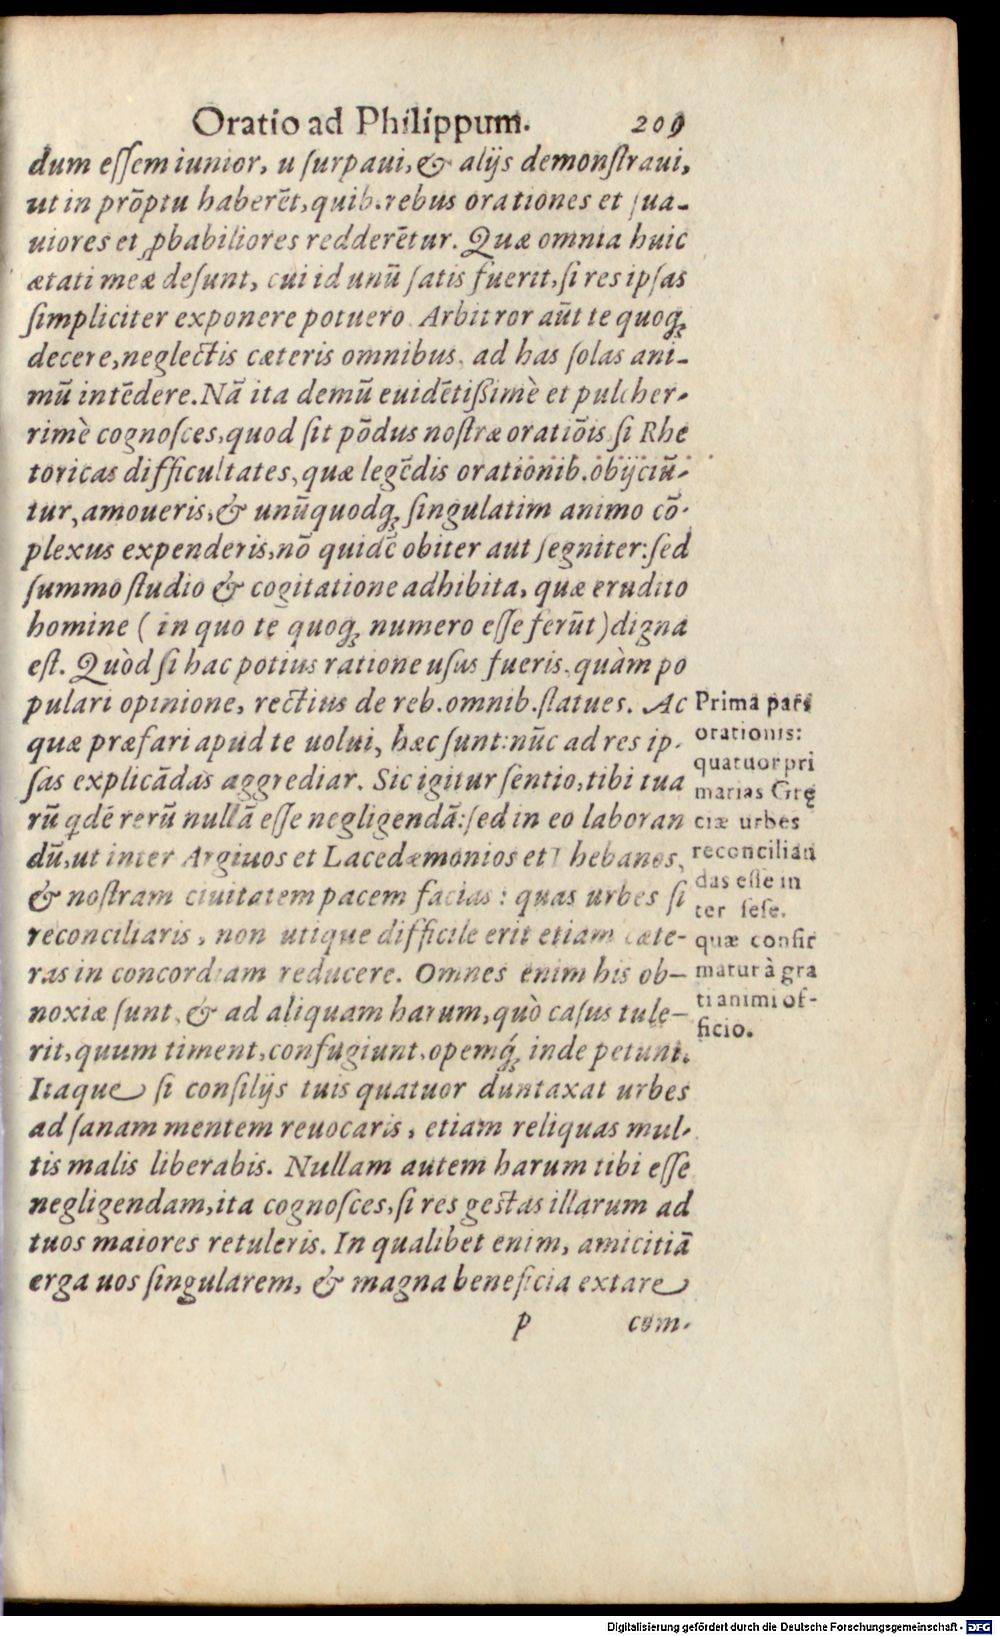 Oratio ad Philippum. 209
dum eſſem iunior, uſurpaui, & alijs demonſtraui,
ut in prōptu haberēt, quib. rebus orationes et ſua-
uiores et ꝓbabiliores redderētur. Quæ omnia huic
ætati meæ deſunt, cui id unū ſatis fuerit, ſi res ipſas
ſimpliciter exponere potuero. Arbitror aūt te quoq́;
decere, neglectis cæteris omnibus, ad has ſolas ani-
mū intēdere. Nā ita demū euidētißimè et pulcher-
rimè cognoſces, quod ſit pōdus noſtræ oratiōis ſi Rhe
toricas difficultates, quæ legēdis orationib. obijciū-
tur, amoueris, & unūquodq; ſingulatim animo cō-
plexus expenderis, nō quidē obiter aut ſegniter: ſed
ſummo ſtudio & cogitatione adhibita, quæ erudito
homine (in quo te quoq; numero eſſe ferūt) digna
eſt. Quòd ſi hac potius ratione uſus fueris, quàm po
pulari opinione, rectius de reb. omnib. ſtatues. Ac
quæ præfari apud te uolui, hæc ſunt: nūc ad res ip-
ſas explicādas aggrediar. Sic igitur ſentio, tibi tua
rū qdē rerū nullā eſſe negligendā: ſed in eo laboran
dū, ut inter Argiuos et Lacedæmonios et Thebanos,
& noſtram ciuitatem pacem facias: quas urbes ſi
reconciliaris, non utique difficile erit etiam cæte-
ras in concordiam reducere. Omnes enim his ob-
noxiæ ſunt, & ad aliquam harum, quò caſus tule-
rit, quum timent, confugiunt, opemq́; inde petunt.
Itaque ſi conſilijs tuis quatuor duntaxat urbes
ad ſanam mentem reuocaris, etiam reliquas mul-
tis malis liberabis. Nullam autem harum tibi eſſe
negligendam, ita cognoſces, ſi res geſtas illarum ad
tuos maiores retuleris. In qualibet enim, amicitiā
erga uos ſingularem, & magna beneficia extare
p com-
Prima pars
orationis:
quatuor pri
marias Grę
ciæ urbes
reconcilian
das eſſe in
ter ſeſe.
quæ confir
matur à gra
ti animi of-
ficio.
Digitalisierung gefördert durch die Deutsche Forschungsgemeinschaft - DFG